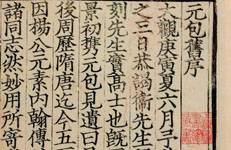 元包舊序
大觀庚寅夏六月子
之三日恭謁衞先生
刻先生實高士也旣
景初㩦元包見遺曰
後周歷隋唐迄今五
因楊公元素内翰傳
諸同志然妙用所寄